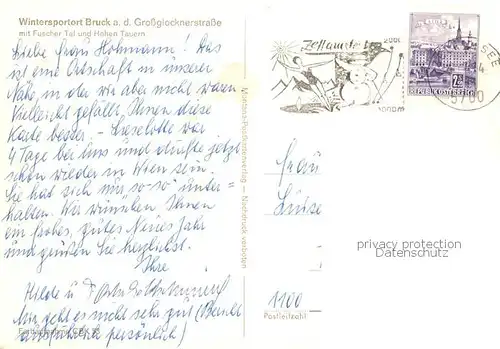 Wintersportort Bruck a. d. Großglocknerstraße
mit Fuscher Tal und Hohen Tauern
Liebe Frau Hohmann! Das
ist eine Ortschaft in unserer
Nähe, in der wir aber nicht waren.
Vielleicht gefällt Ihnen diese
Karte besser. - Lieselotte war
4 Tage bei uns und dürfte jetzt
schon wieder in Wien sein.
Sie hat sich nur "so-so" unter-
halten. Wir wünschen Ihnen
ein frohes, gutes Neues Jahr
und grüßen Sie herzlichst.
Ihre
Hilde u
Mir geht es nicht sehr gut (Bericht
persönlich)
Nachdruck verboten
Zell am See
2000
1000 m
SEE
4
5700
2.-
REPUBLIK ÖSTERREICH
Frau
Luise
privacy protection
Datenschutz
1100
Postleitzahl